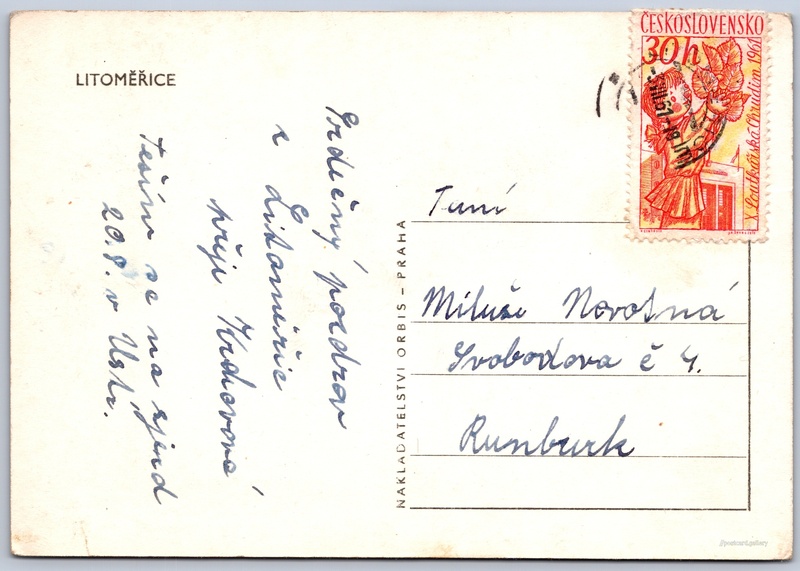 LITOMĚŘICE
Srdečný pozdrav
z Litoměřic
přeje
Těším se na sjezd
20.8. v Ústí.
NAKLADATELSTVÍ ORBIS – PRAHA
ČESKOSLOVENSKO
30h
X. Loutkářská Chrudim 1961
Paní
Miluše Novotná
Svobodova č 4.
Rumburk